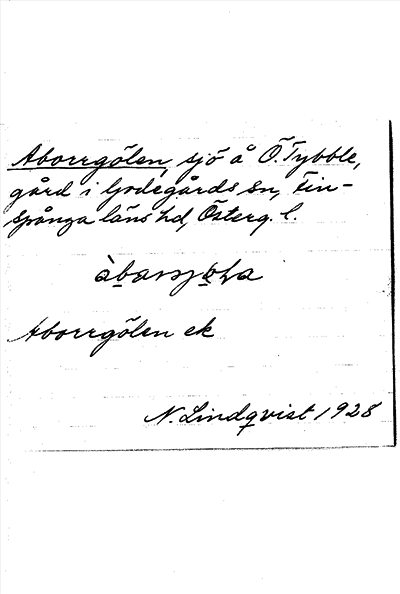 Aborrgölen, sjö å Ö. Tybble,
gård i Godegårds sn, Fin-
spånga läns hd, Österg. l.
Aborrgölen ek
N. Lindqvist 1928